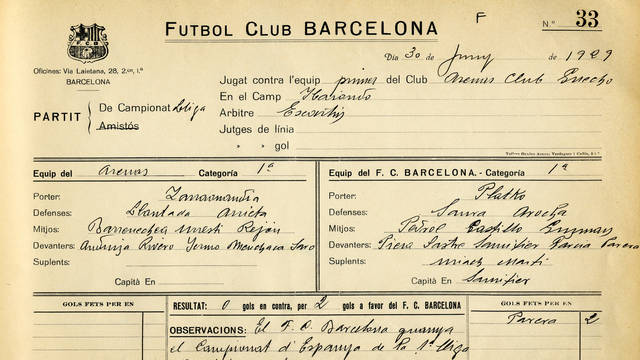 FUTBOL CLUB BARCELONA
F
N.º 33
Oficines: Via Laietana, 28, 2.on, 1.ª
BARCELONA
Dia 30 de Juny de 1929
Jugat contra l'equip primer del Club Arenas Club Guecho
PARTIT
De Campionat Lliga
Amistós
En el Camp Ibaiondo
Arbitre Escartin
Jutges de línia
» » gol
Equip del Arenas Categoría 1ª
Porter:
Defenses: Llantada Arrieta
Mitjos: Barrenechea Urresti Rejón
Devanters: Rivero Yermo Menchaca Saro
Suplents:
Capità En
Equip del F. C. BARCELONA. - Categoría 1ª
Porter: Platko
Defenses: Saura Arocha
Mitjos: Castillo Guzman
Devanters: Piera Sastre Samitier Garcia Parera
Suplents: Martí
Capità En Samitier
GOLS FETS PER EN
RESULTAT: 0 gols en contra, per 2 gols a favor del F. C. BARCELONA
OBSERVACIONS: El F. C. Barcelona guanya
el Campionat d'Espanya de la 1ª Lliga
GOLS FETS PER EN
Parera 2